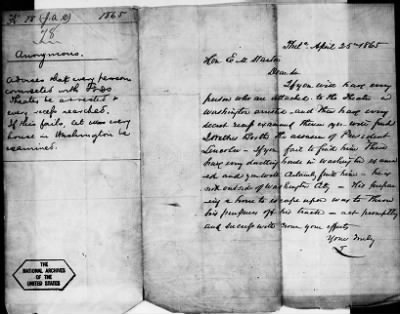 K 78 (J.A.O) 1865
78
Anonymous.
Advises that every person
connected with Fords
Theater be arrested &
every recess searched.
If this fails, let every
house in Washington be
examined.
THE
NATIONAL ARCHIVES
OF THE
UNITED STATES
April 25th 1865
Hon. E. M. Stanton
Dear Sir
If you will have every
person who are attached to the Theater in
Washington arrested and then have every
secret recess examined you will find
Booth the assassin of President
Lincoln – If you fail to find him There
have every dwelling house in Washington
and you will find him – he is
not outside of Washington City – His
a horse to escape upon was to throw
his pursuers off his track – act promptly
and success will crown your efforts
Yours truly